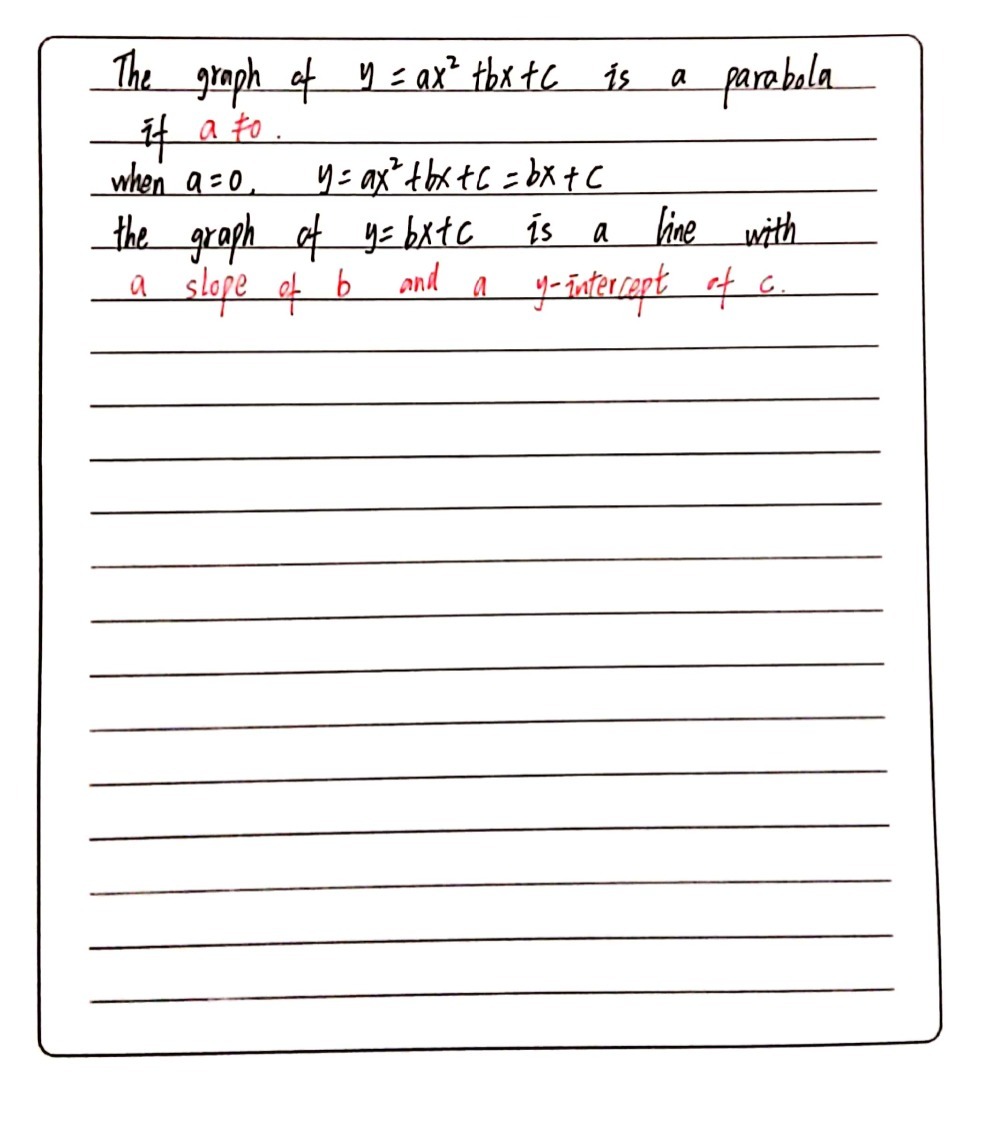 The graph of y = ax² + bx + c is a parabola
if a ≠ 0.
when a = 0, y = ax² + bx + c = bx + c
the graph of y = bx + c is a line with
a slope of b and a y-intercept of c.